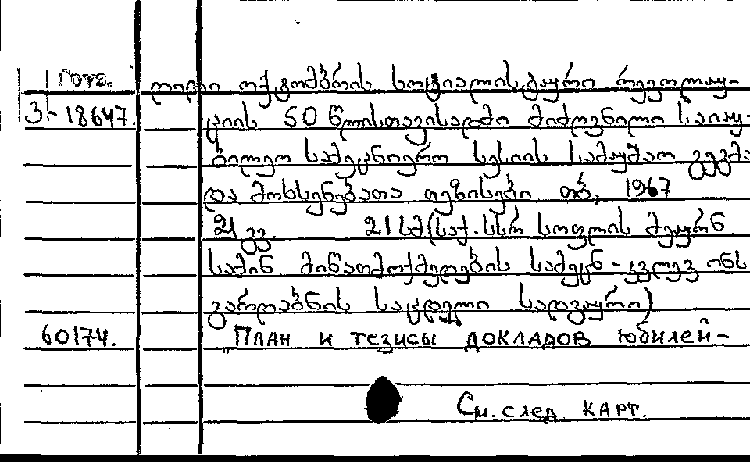 დიდი ოქტომბრის სოციალისტური რევოლუ-
3-18647. ციის 50 წლისთავისადმი მიძღვნილი საიუ-
ბილეო სამეცნიერო სესიის სამუშაო გეგმა
და მოხსენებათა თეზისები თბ, 1967
21 გვ. 21 სმ (საქ. სსრ სოფლის მეურნ
სამინ მიწათმოქმედების სამეცნ-კვლევ ინს
გარდაბნის საცდელი სადგური)
60174. План и тезисы докладов юбилей-
См. след. карт.